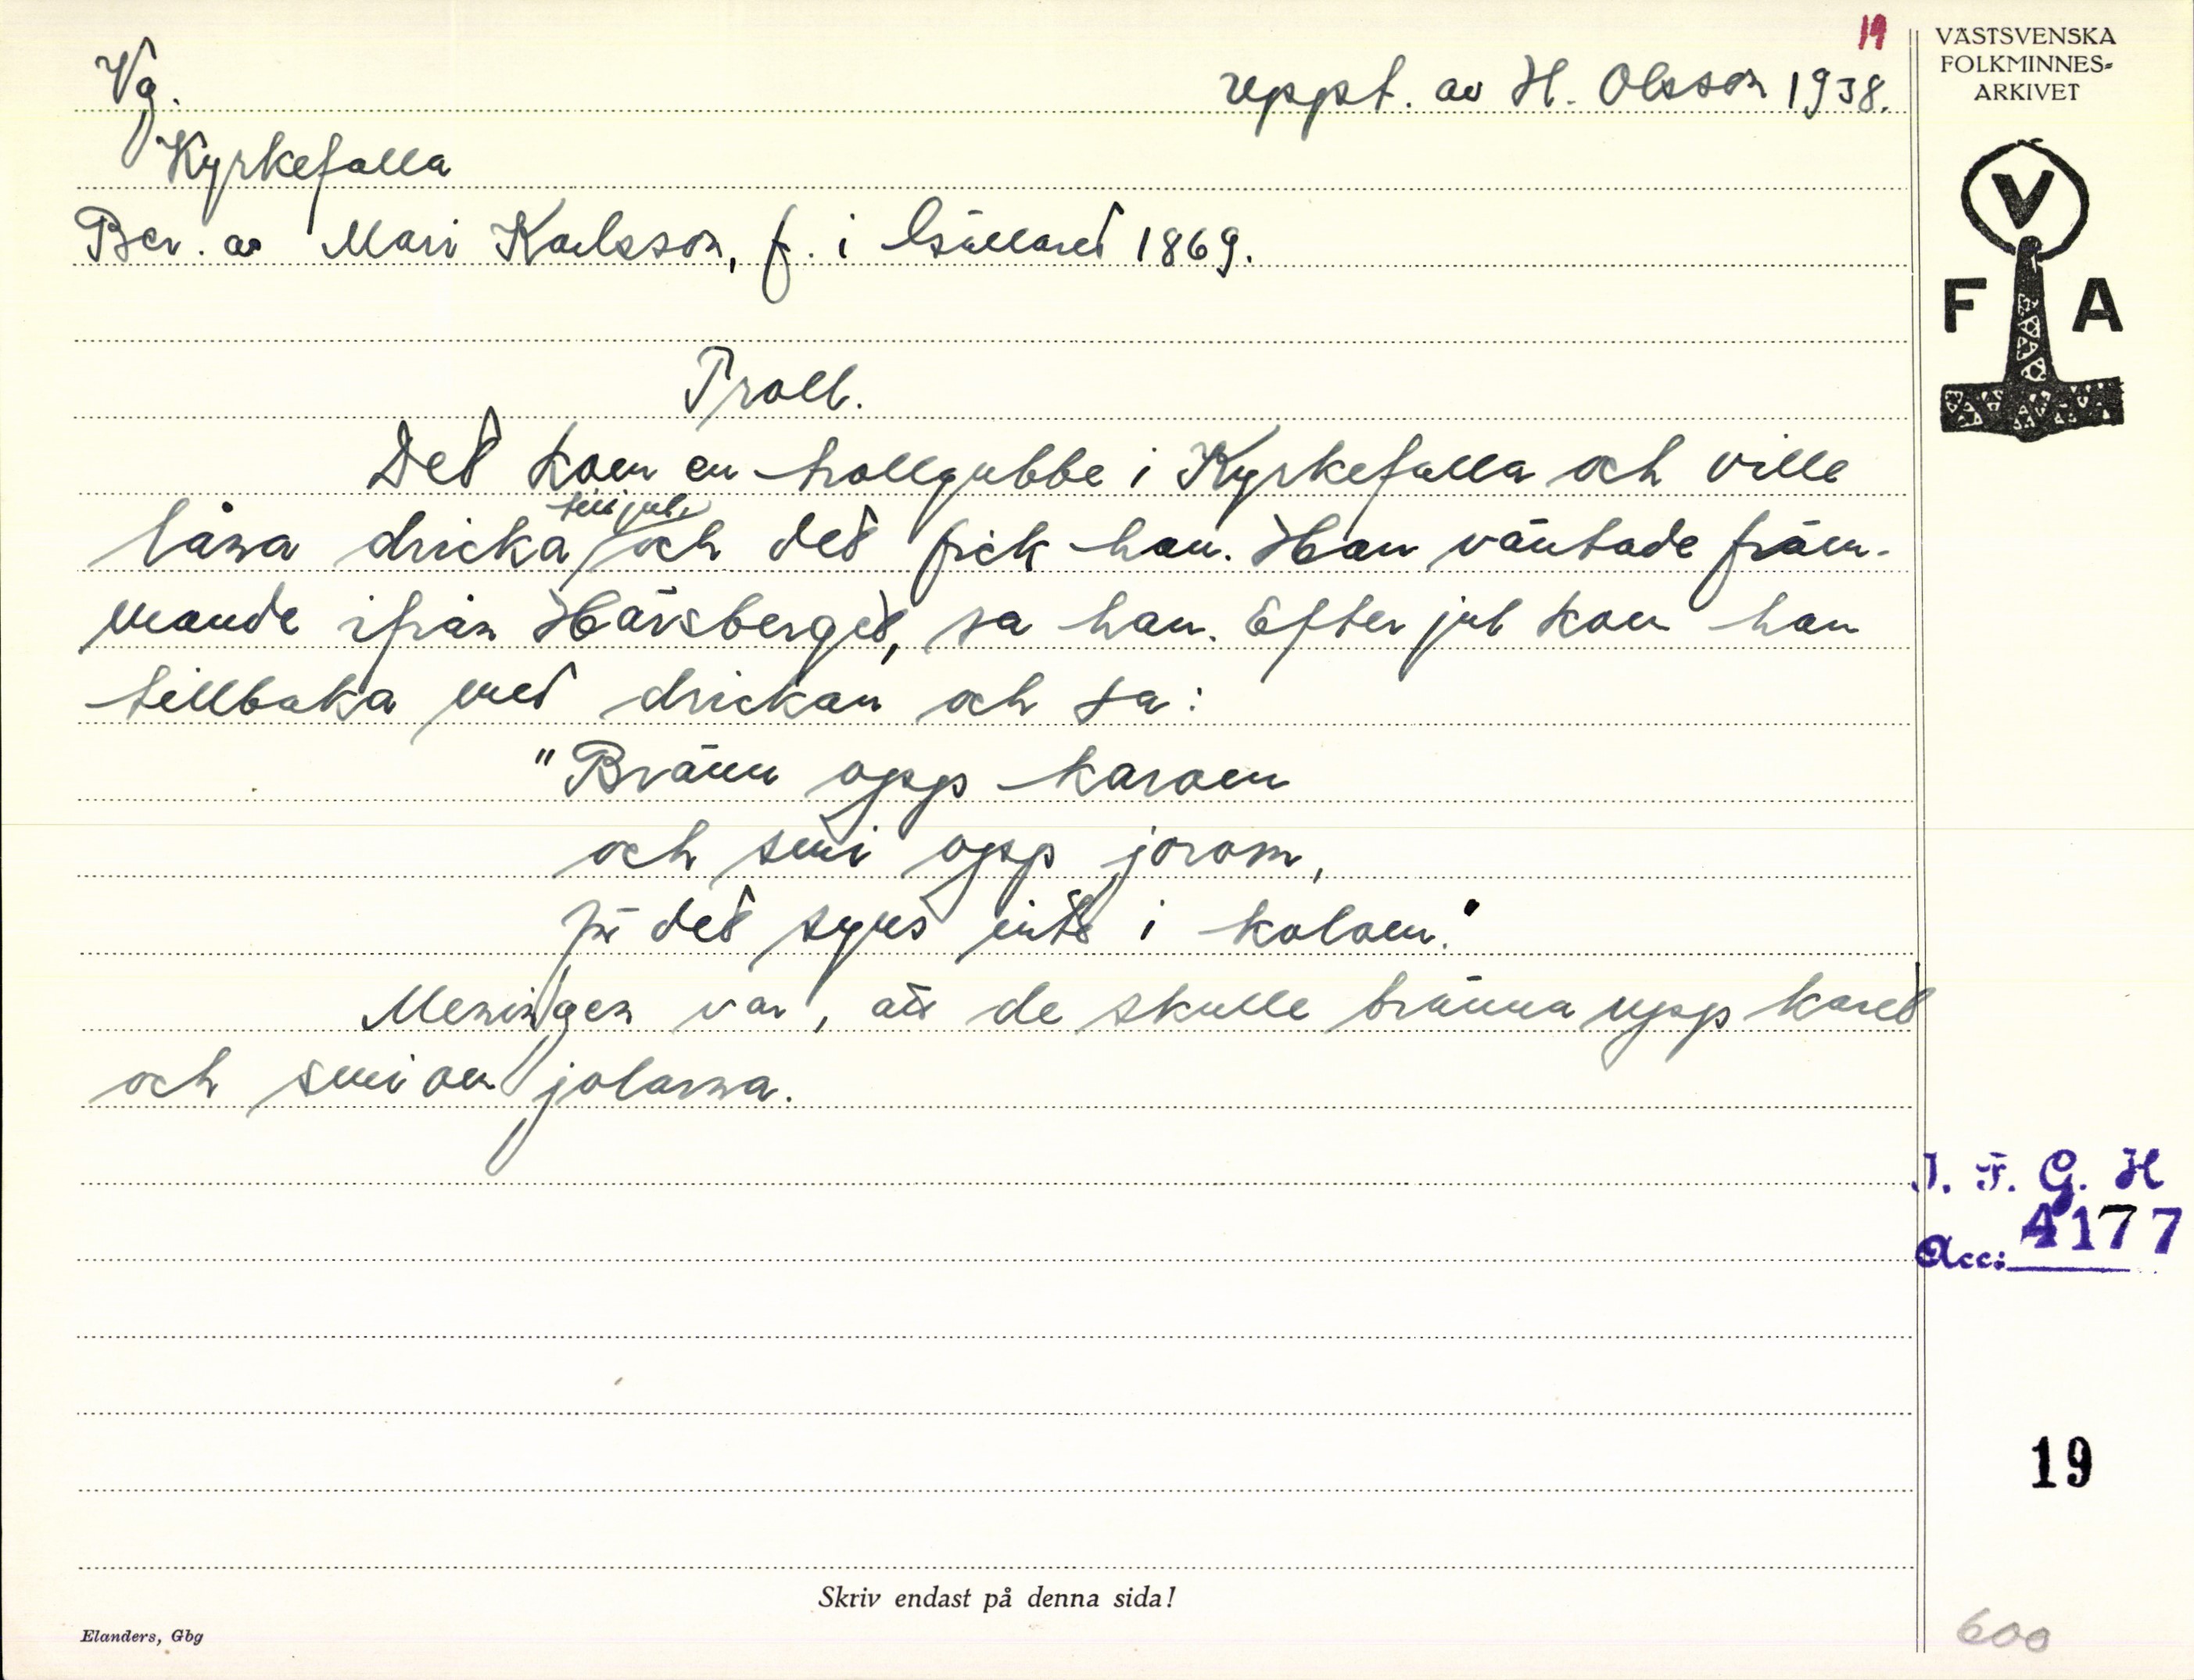 19
VÄSTSVENSKA
FOLKMINNES-
ARKIVET
Vg. uppt. av H. Olsson 1938.
Kyrkefalla
Ber. av Mari Karlsson, f. i Gällared 1869.
V
F A
Troll.
Det kom en trollgubbe i Kyrkefalla och ville
till jul,
låna dricka och det fick han. Han väntade främ-
mande ifrån Hårsberget, sa han. Efter jul kom han
tillbaka med drickan och sa:
"Bränn opp karom
och smi opp jorom,
för det syns inte i kolom."
Meningen var, att de skulle bränna upp karet
och smi om jolarna.
I. F. G. H
Acc: 4177
19
Skriv endast på denna sida!
Elanders, Gbg
600